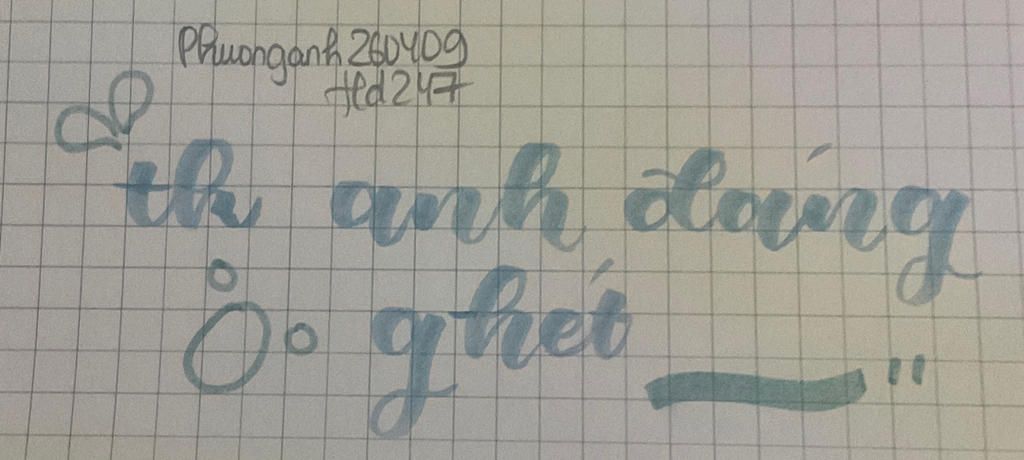 Phuonganh260409
Hd247
th anh đáng
ghét "